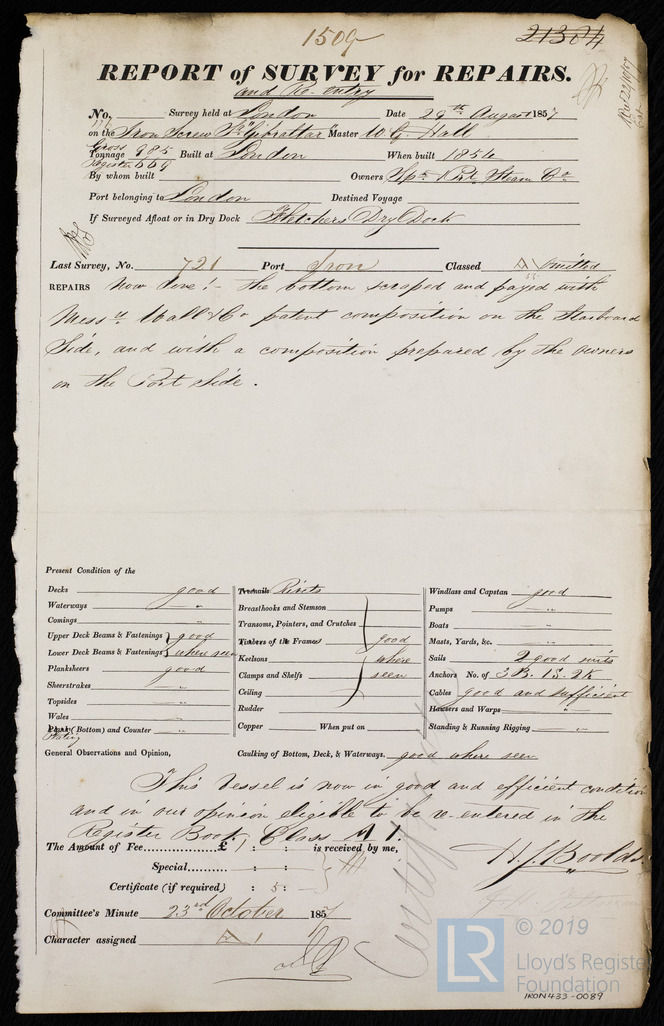 1509
21304
REPORT of SURVEY for REPAIRS.
and Re-entry
No. Survey held at London Date 29th August 1857
on the Iron Screw Sr. "Gibraltar" Master W. G. Hall
Gross
Tonnage 985 Built at London When built 1854
Register 669
By whom built Owners Steam Co
Port belonging to London Destined Voyage
If Surveyed Afloat or in Dry Dock Fletchers Dry Dock
Last Survey, No. 721 Port Iron Classed A omitted
REPAIRS Now Done :- The bottom scraped and payed with
Messrs Hall & Co patent composition on the Starboard
Side, and with a composition prepared by the owners
on the Port Side.
Present Condition of the
Decks good
Waterways "
Comings "
Upper Deck Beams & Fastenings good
Lower Deck Beams & Fastenings where seen
Planksheers good
Sheerstrakes "
Topsides "
Wales "
Plank (Bottom) and Counter "
Plating
Treenails Rivets
Breasthooks and Stemson
Transoms, Pointers, and Crutches
Timbers of the Frames good
Keelsons where
Clamps and Shelfs seen
Ceiling
Rudder
Copper When put on
Windlass and Capstan good
Pumps "
Boats "
Masts, Yards, &c. "
Sails 2 good suits
Anchors No. of 3B. 1S. 2K
Cables good and sufficient
Hawsers and Warps "
Standing & Running Rigging "
General Observations and Opinion, Caulking of Bottom, Deck, & Waterways. good where seen
This Vessel is now in good and efficient condition
and in our opinion eligible to be re-entered in the
Register Book, Class A 1.
The Amount of Fee £ 1 : : is received by me,
Special : :
H. J. Boolds
Certificate (if required) : 5 :
Committee's Minute 23rd October 1857
Character assigned A 1
© 2019
LR
Lloyd's Register
Foundation
IRON433-0089